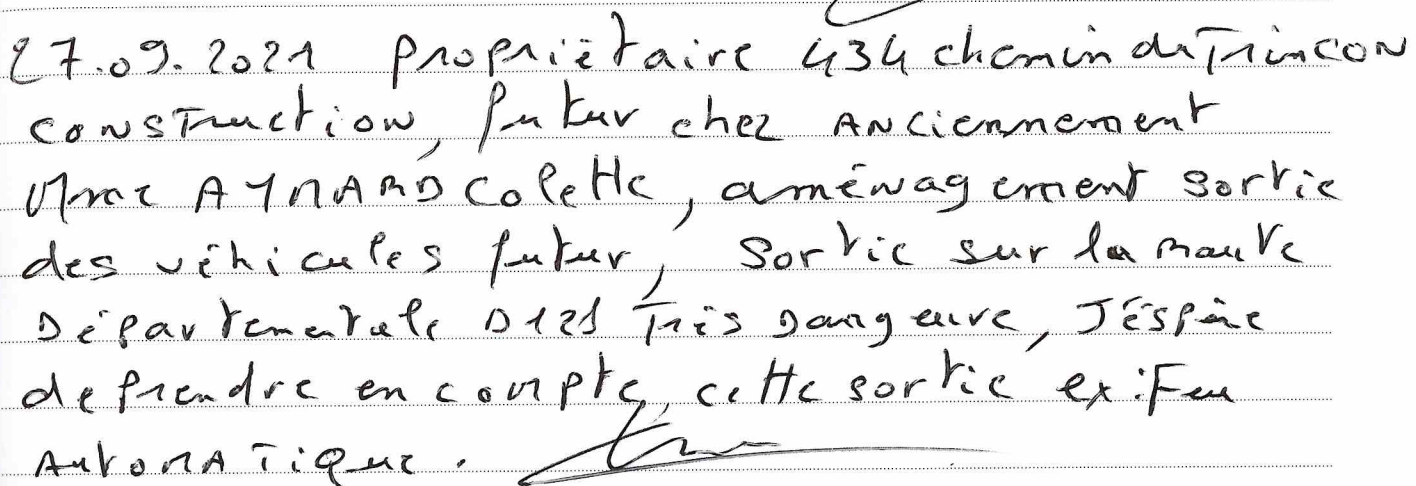 27.09.2021 propriètaire 434 chemin du Trincon
construction, futur chez Anciennement
Mme AYMARD Colette, aménagement sortie
des véhicules futur, sortie sur la route
Départementale D121 Très Dangeure, J'éspère
de prendre en compte, cette sortie ex: Feu
Automatique.